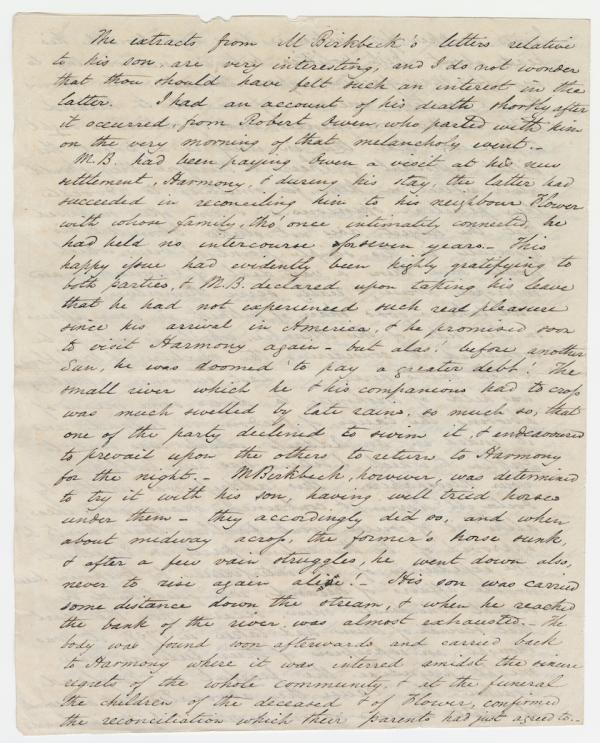 The extracts from M Birkbeck's letters relative
to his son, are very interesting, and I do not wonder
that thou should have felt such an interest in the
latter. I had an account of his death shortly after
it occurred, from Robert Owen, who parted with him
on the very morning of that melancholy event._
M.B. had been paying Owen a visit at his new
settlement, Harmony, & during his stay, the latter had
succeeded in reconciling him to his neighbour Flower
with whose family, tho' once intimately connected, he
had held no intercourse for seven years._ This
happy issue had evidently been highly gratifying to
both parties, & M.B. declared upon taking his leave
that he had not experienced such real pleasure
since his arrival in America, & he promised soon
to visit Harmony again - but alas! before another
Sun, he was doomed to pay a greater debt! The
small river which he & his companions had to cross
was much swelled by late rains, so much so, that
one of the party declined to swim it, & endeavoured
to prevail upon the others to return to Harmony
for the night._ M Birkbeck, however, was determined
to try it with his son, having well tried horses
under them - they accordingly did so, and when
about midway across, the former's horse sunk,
& after a few vain struggles, he went down also,
never to rise again alive!_ His son was carried
some distance down the stream, & when he reached
the bank of the river was almost exhausted._ The
body was found soon afterwards and carried back
to Harmony where it was interred amidst the sincere
regrets of the whole community, & at the funeral
the children of the deceased & of Flower, confirmed
the reconciliation which their parents had just agreed to._